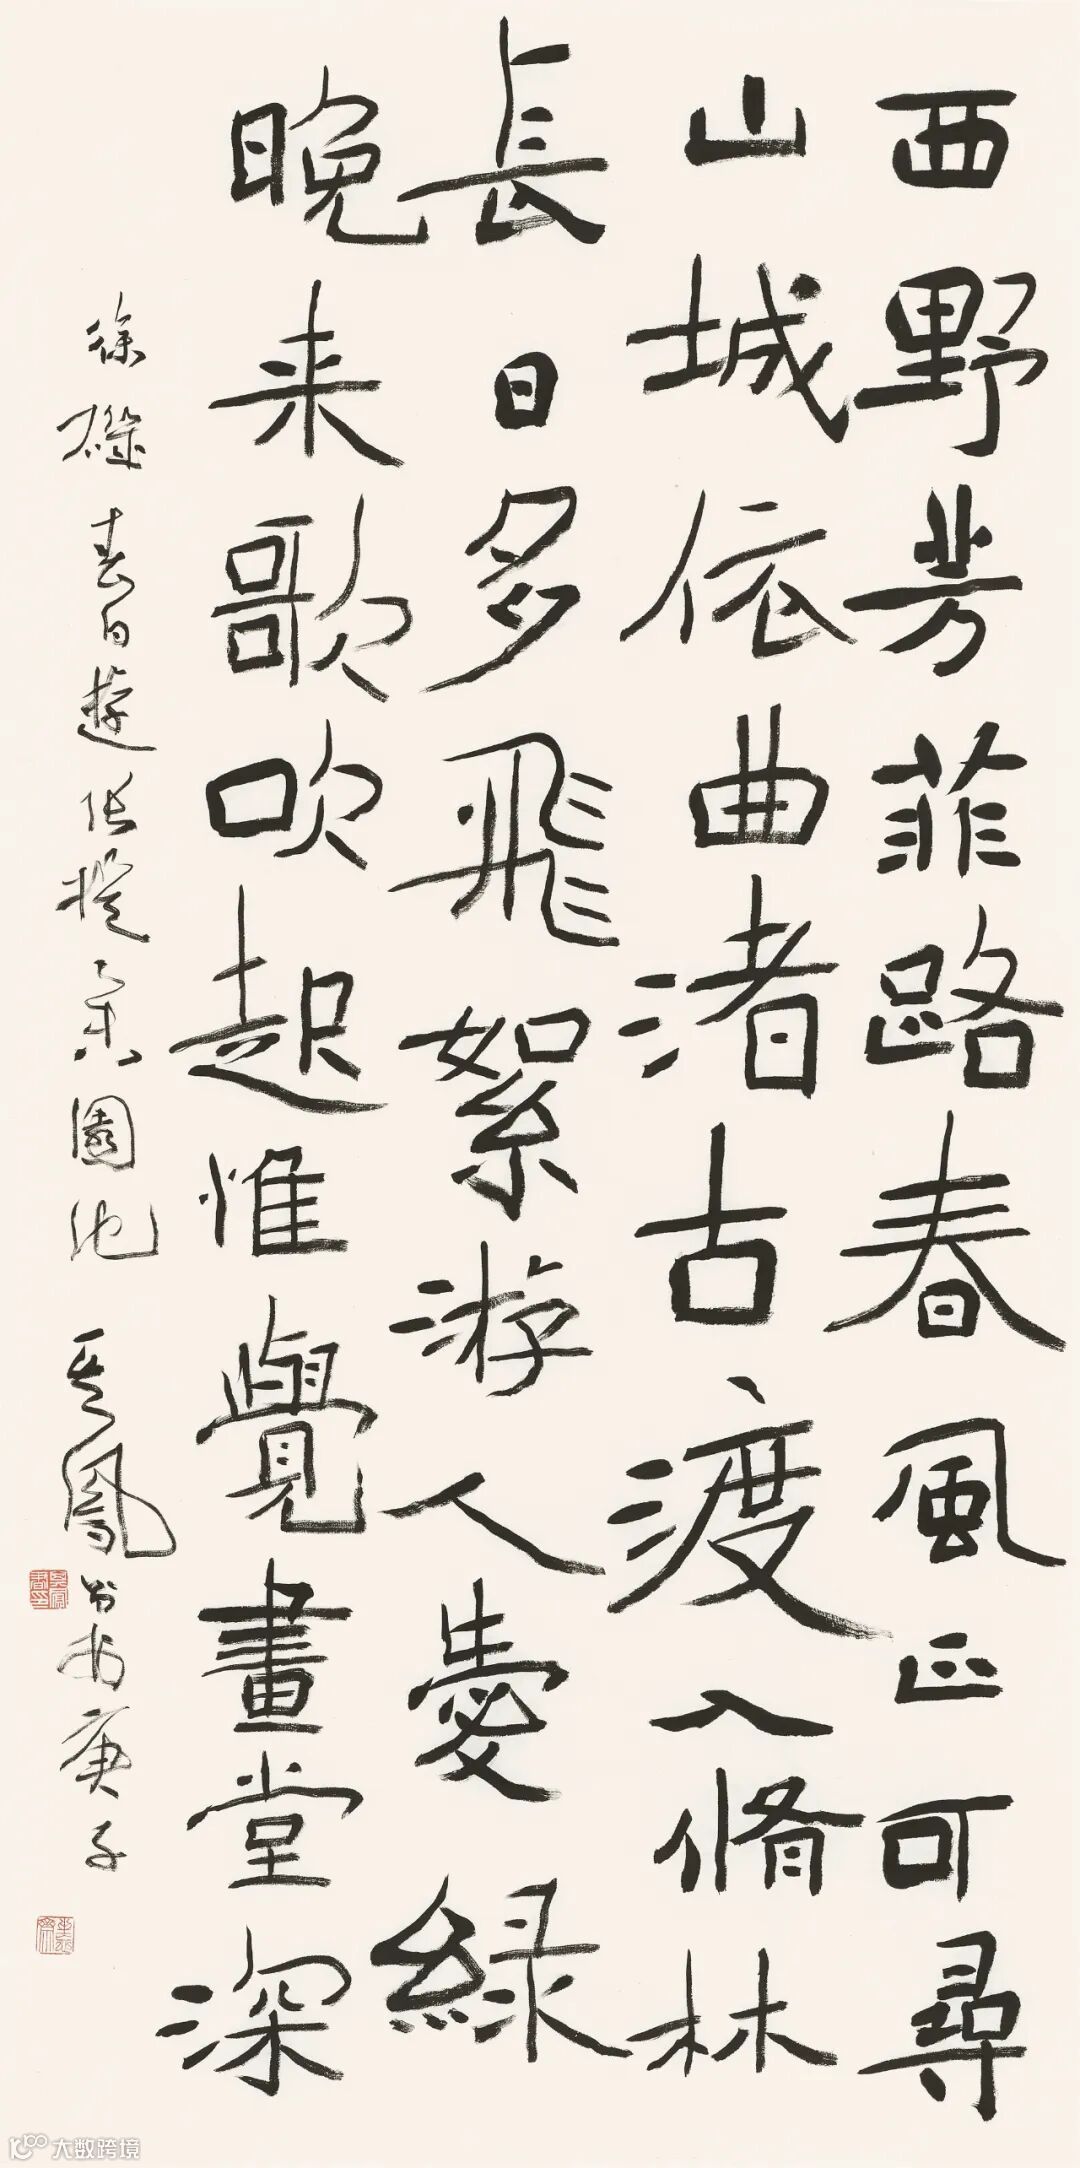 西野芳菲路春風正可尋
山城依曲渚古渡入脩林
長日多飛絮游人愛綠
晚来歌吹起惟覺畫堂深
徐璣春日遊張提舉園池 吳鳳书於庚子
大数跨境